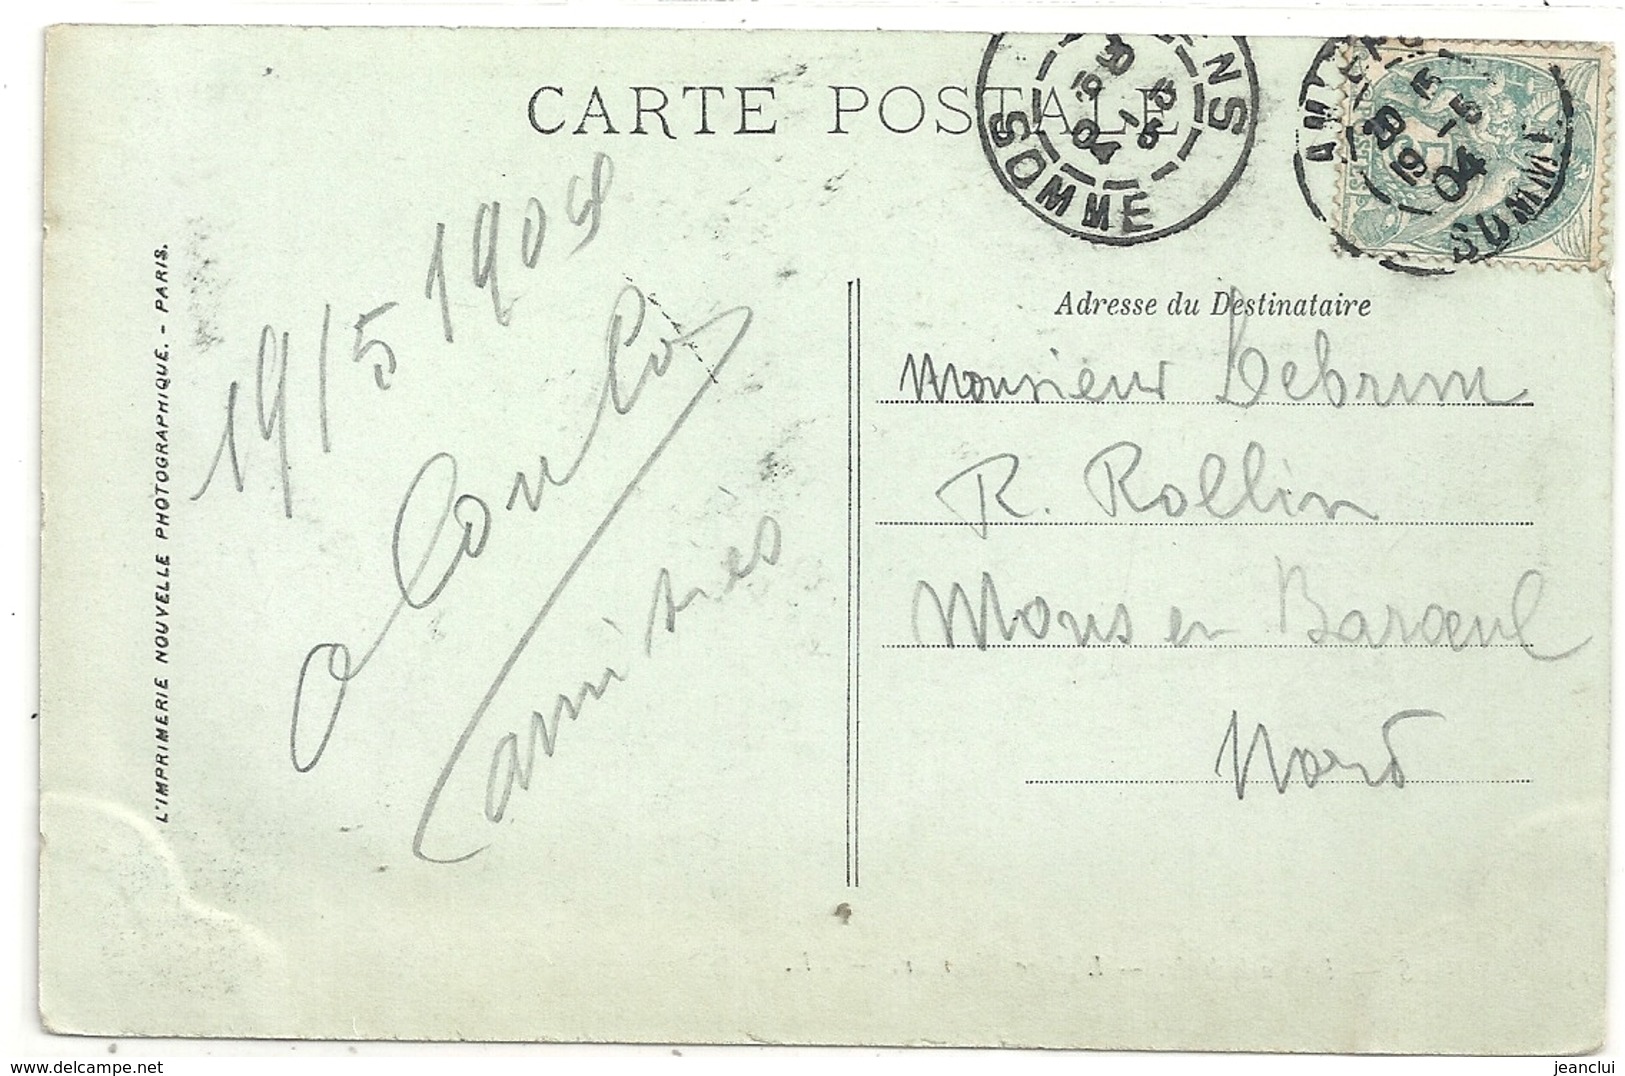 CARTE POSTALE
SOMME
04
AMIENS
19 -5
04
L'IMPRIMERIE NOUVELLE PHOTOGRAPHIQUE. - PARIS.
19/5 1904
amitiés
Adresse du Destinataire
Monsieur Lebrun
R. Rollin
Mons en Baroeul
Nord
jeanclui